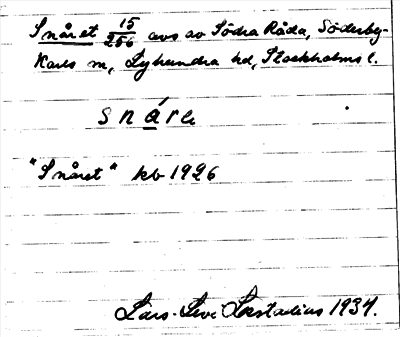 Snåret 15/256 avs av Södra Råda, Söderby-
Karls sn, Lyhundra hd, Stockholms l.
snárẹ
"Snåret" kb 1926
Lars-Levi Læstadius 1934.